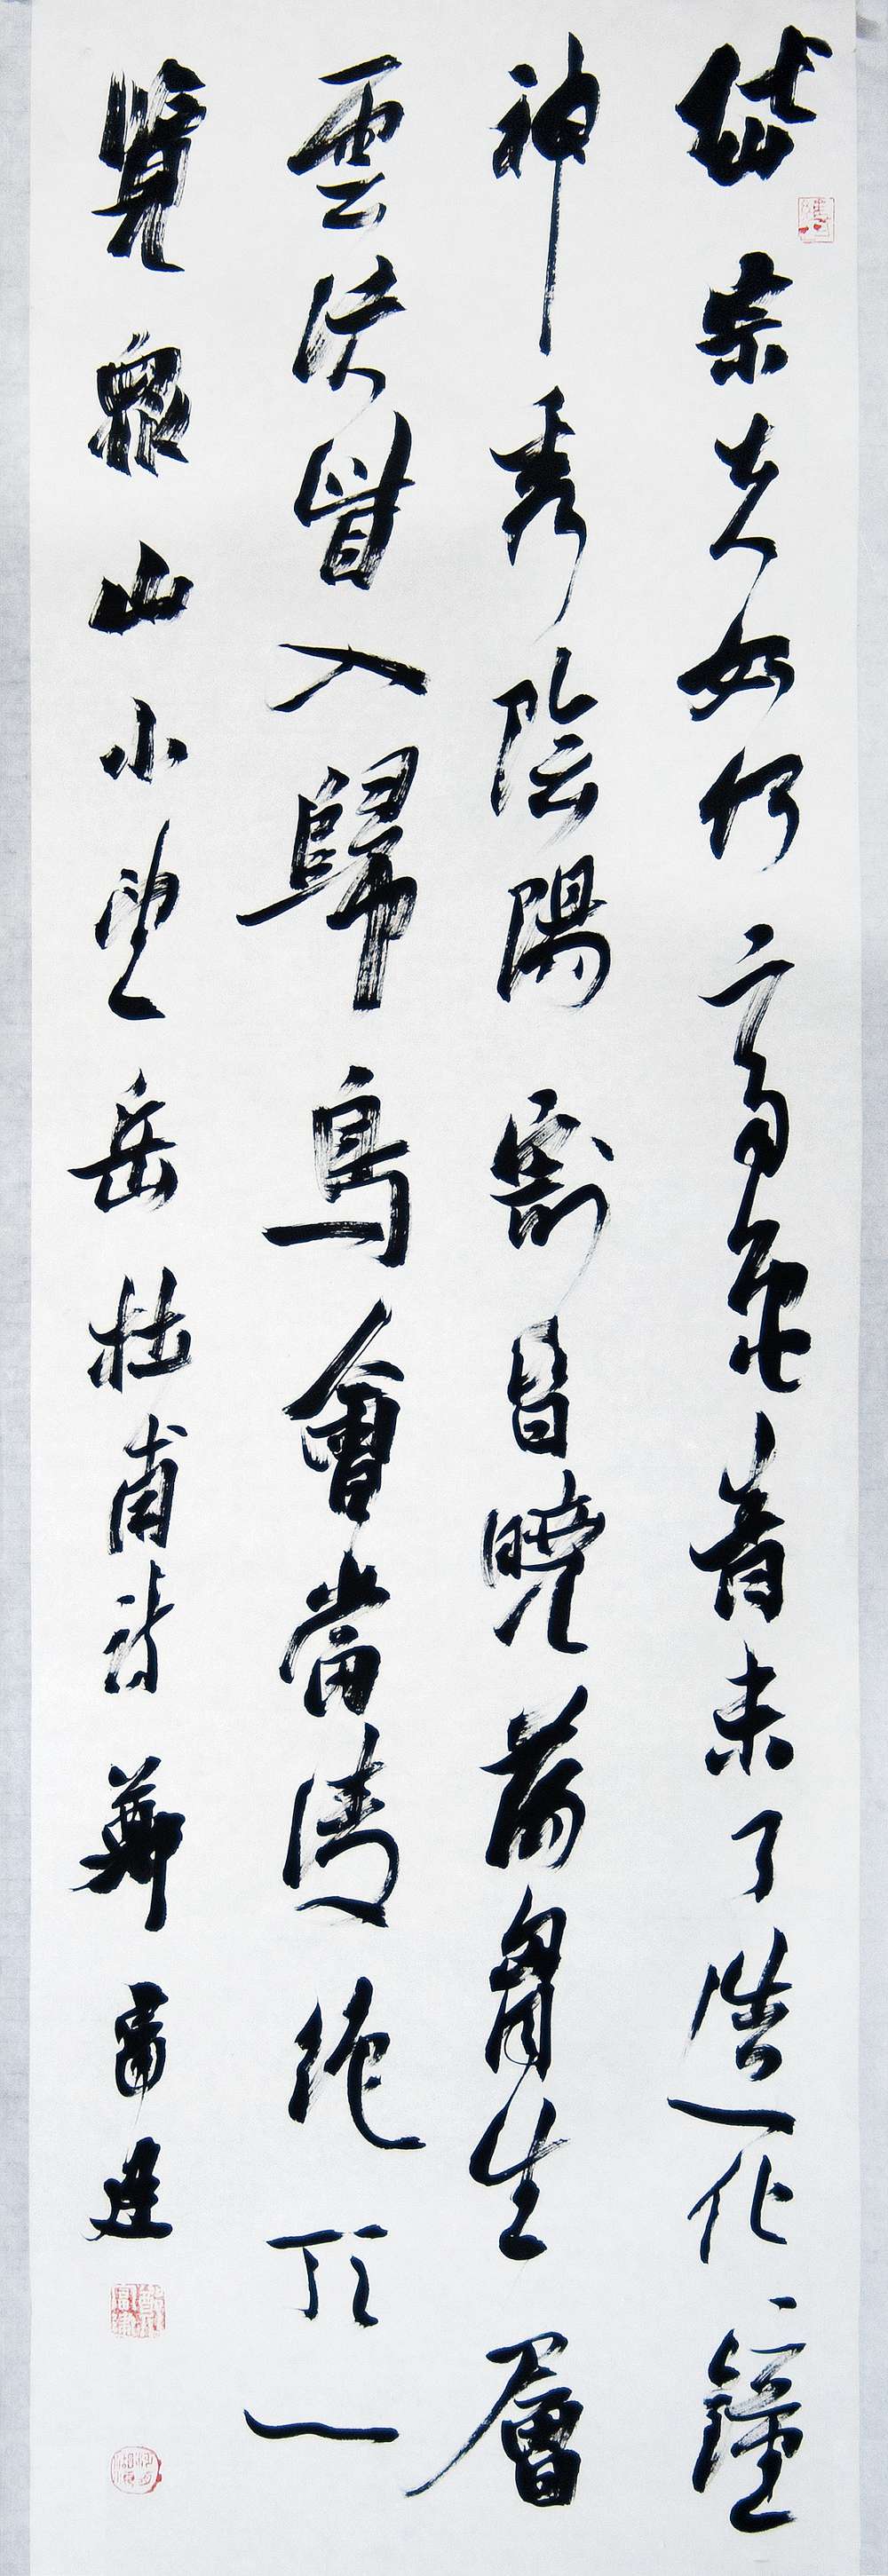 岱宗夫如何齊魯青未了造化鐘
神秀陰陽割昏曉蕩胷生層
雲決眥入歸鳥會當凌絕頂一
覽眾山小望岳杜甫詩鄭富建